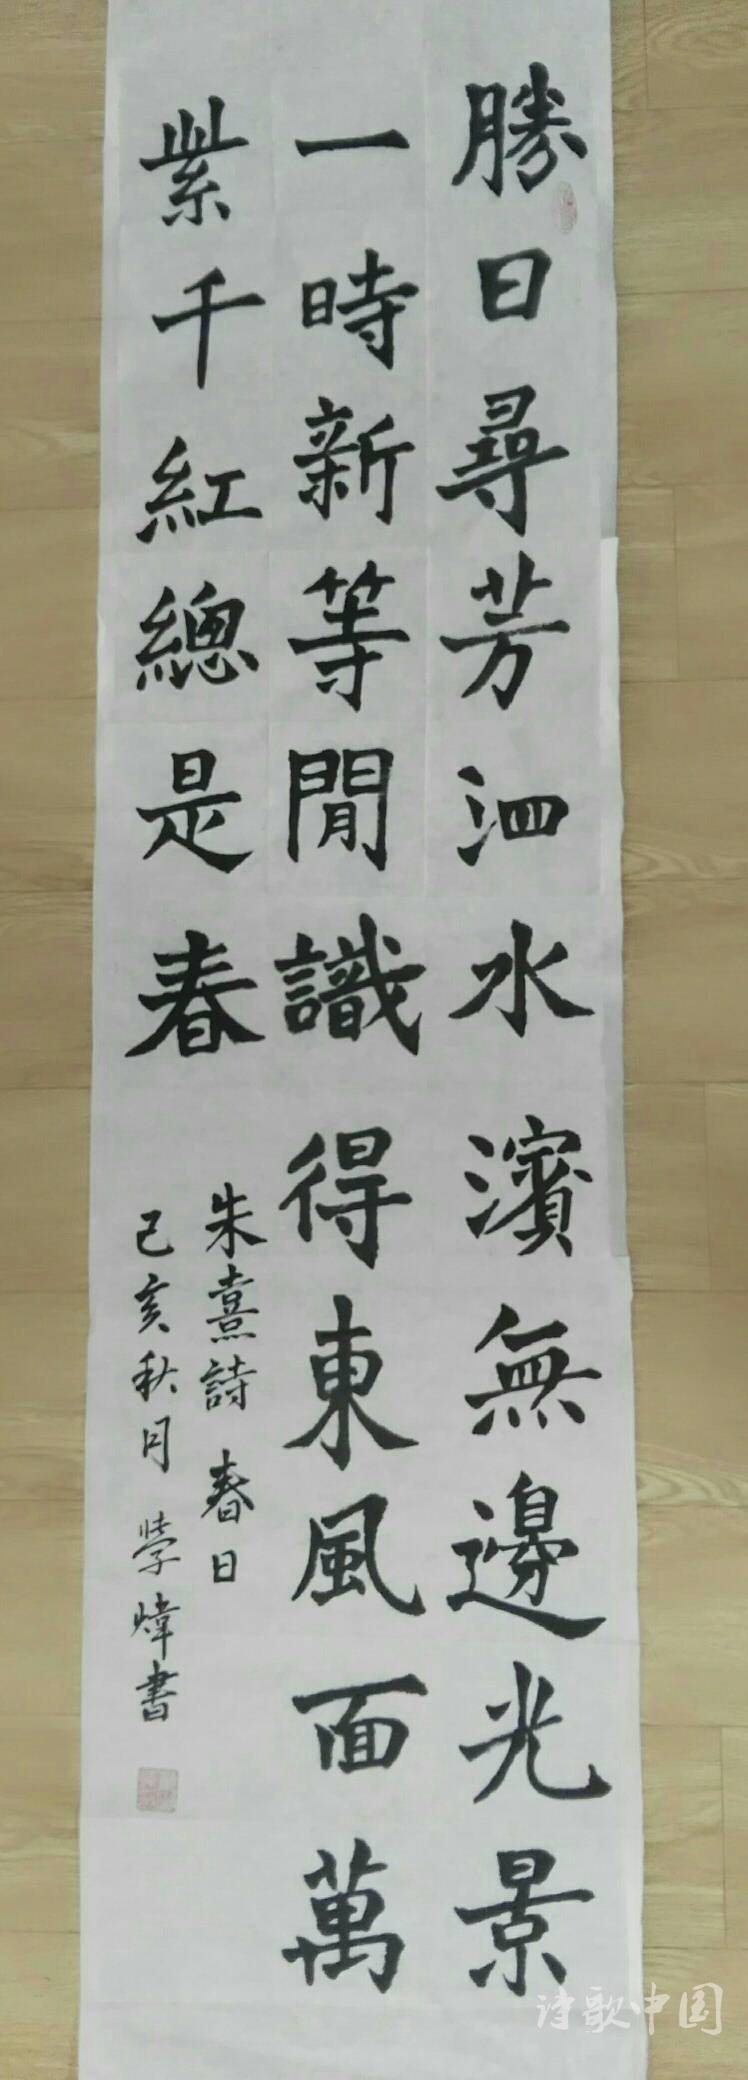 勝日尋芳泗水濱無邊光景
一時新等閒識得東風面萬
紫千紅總是春
朱熹詩 春日
己亥秋月 學煒書
诗歌中国